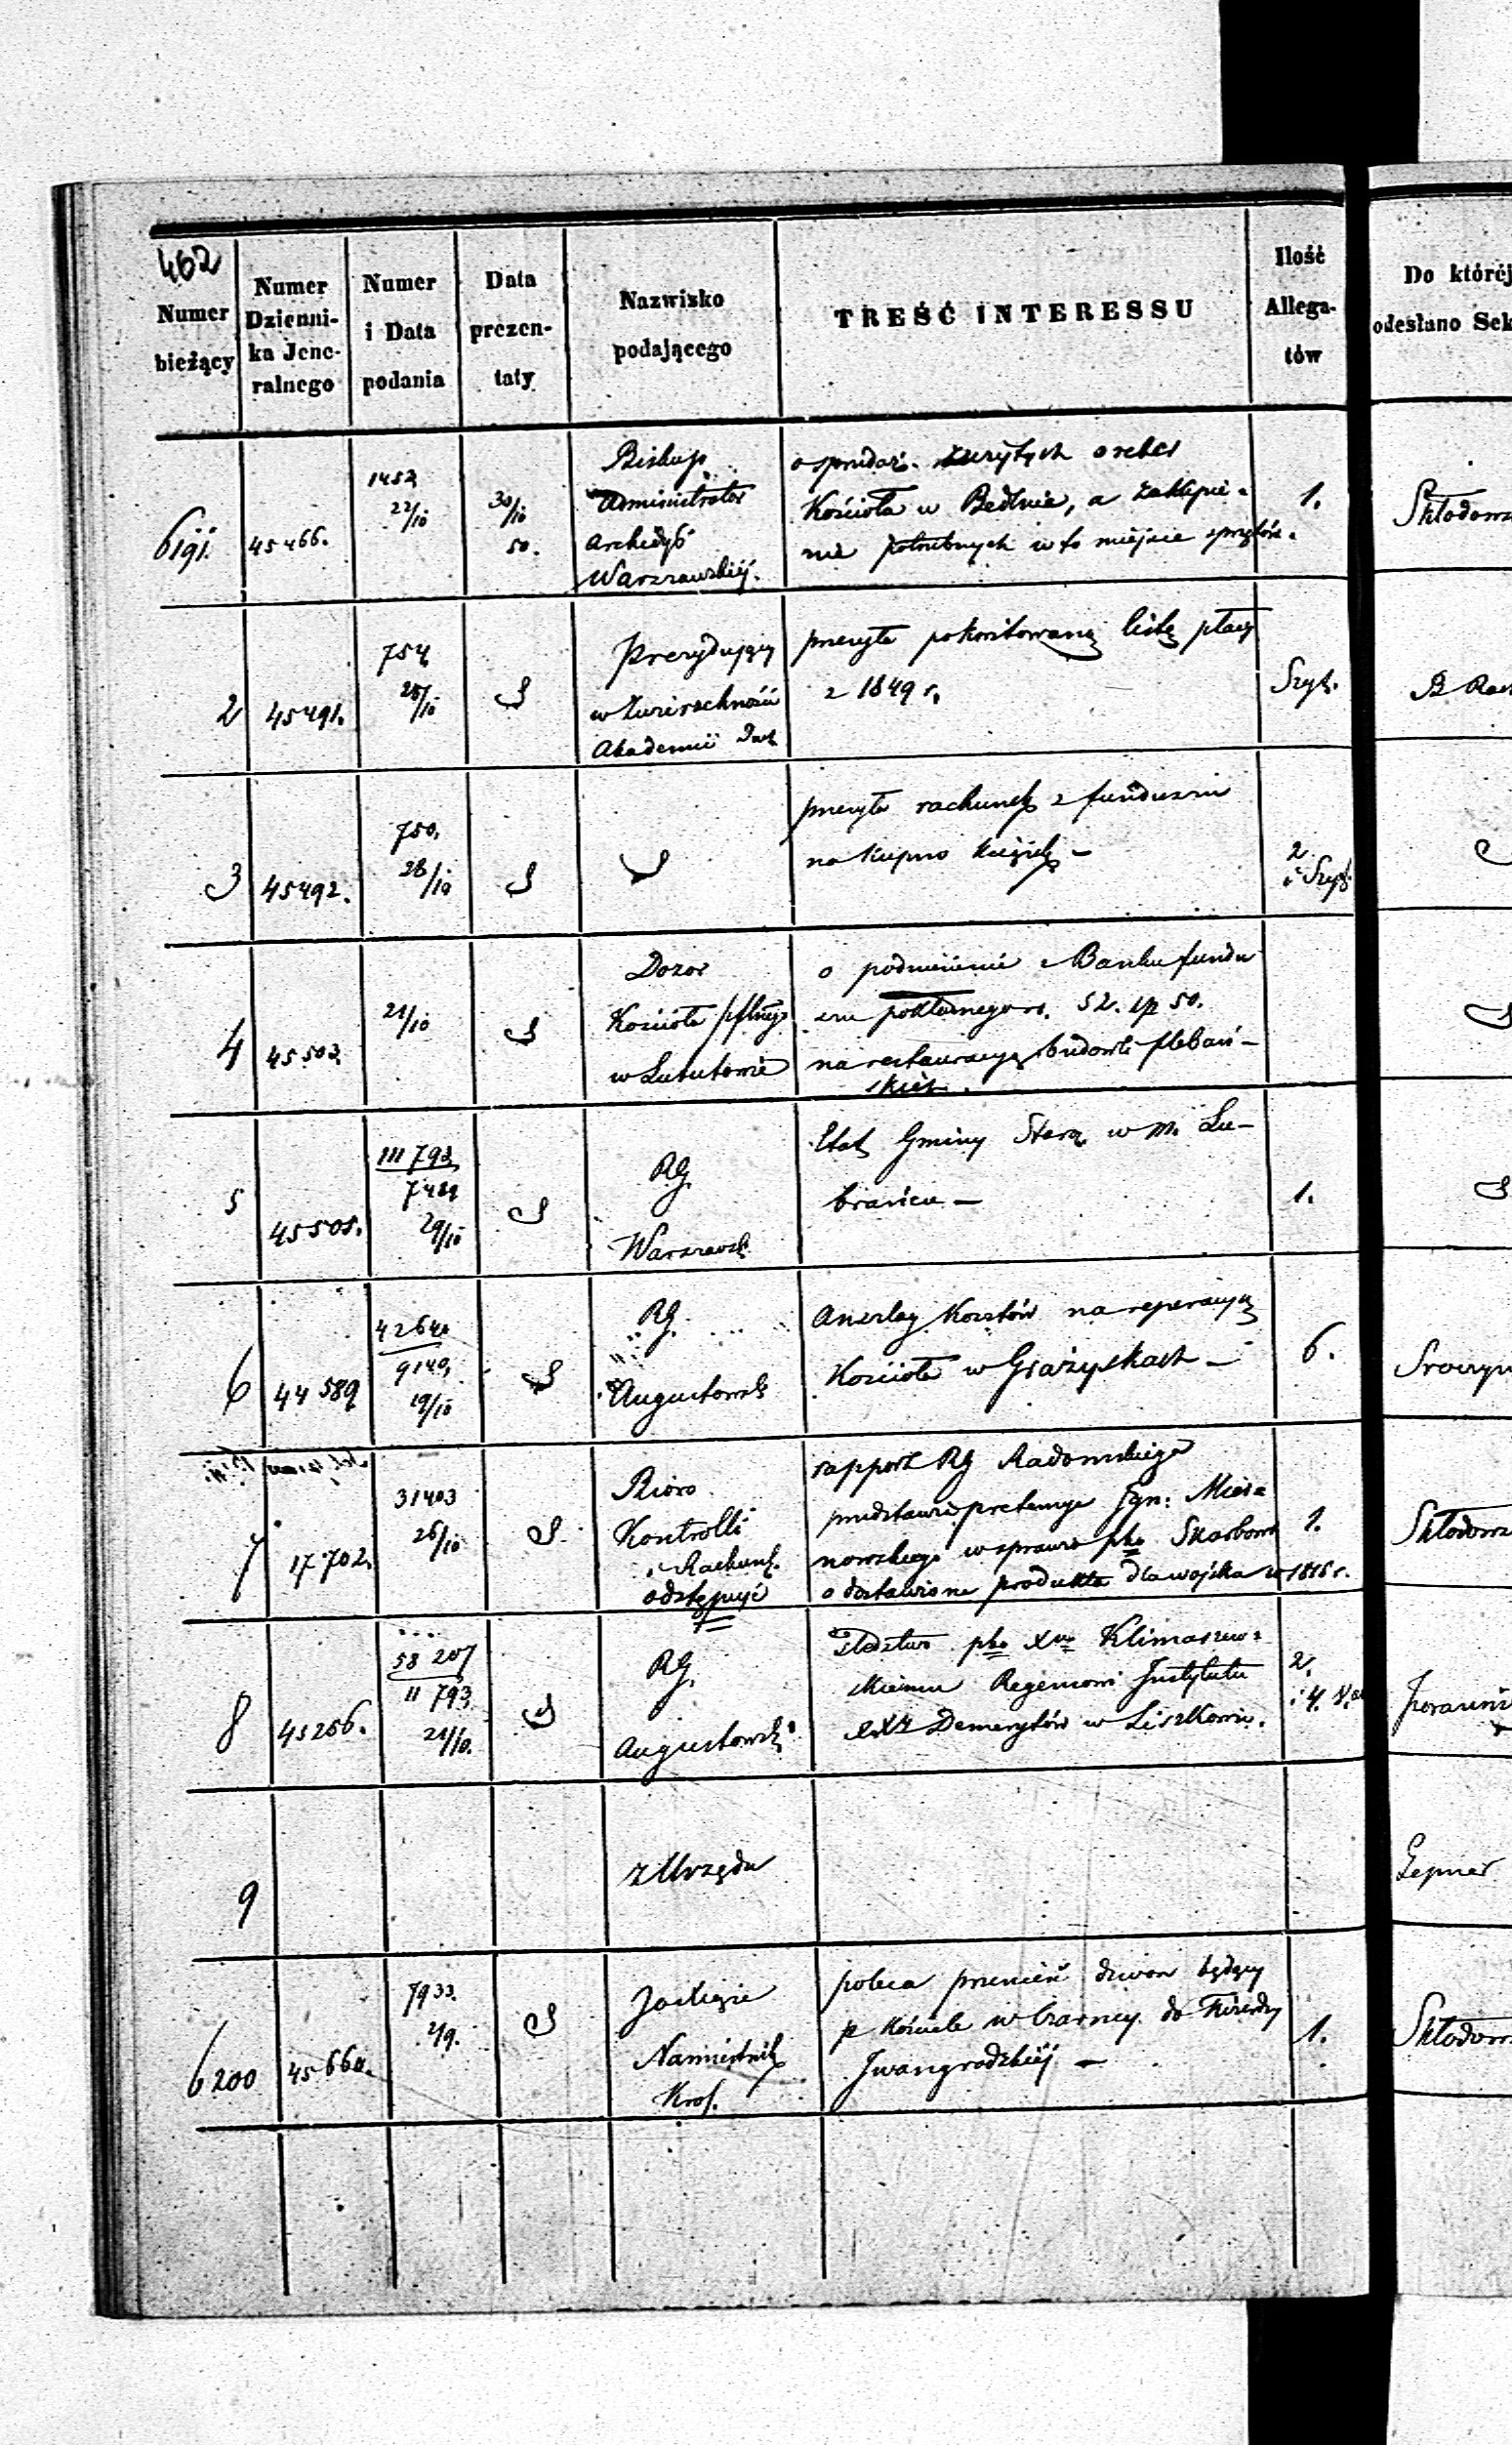 462
Numer
bieżący
Numer
Dzienni-
ka Jene-
ralnego
Numer
i Data
podania
Data
prezen-
taty
Nazwisko
podającego
TREŚĆ INTERESSU
Ilość
Allega-
tów
Do któréj
odesłano Sek
6191. 45466.
1453
22/10
30/10
50.
Biskup
Administrator
Archidyć
Warszawskiéj.
o sprzedaż. zużytych
Kościoła w Bedlnie, a zakupie-
nie potrzebnych w to miejsce sprzętów.
1.
Skłodows
2 45491.
754
28/10
Prezydujący
w Zwierzchności
Akademii Duch
przesyła pokwitowaną listę płacy
z 1849 r.
Szyt.
B Rach
3 45492.
750.
28/10
przesyła rachunek z funduszu
na kupno książek —
2
i Szyt.
4 45503
21/10
Dozor
Kościoła
w Lututowie
o podniesienie z Banku fundu
szu pokładnego rs. 52. kp 50.
na restauracyą budowli plebań-
skich.
5 45505.
111793
7489
29/10
RG.
Warszawsk
Etat Gminy Staroz. w m. Lu-
brańcu —
1.
6 44589
42640
9140,
19/10
RG.
Augustowsk
Anszlag Kosztów na reperacyą
Kościoła w Grażyskach —
6.
7 17702.
31403
26/10
Bioro
Kontrolli
i Rachunk.
odstępuje
rapport RG Radomskiego
przedstawia pretensye Ign: Miesz
nowskiego w sprawie pko Skarbowi
o dostawione produkta dla wojska w 1815 r.
1.
Skłodows
8 45256.
58207
11793
21/10.
RG.
Augustowsk
Śledztwo pko Klimaszew-
skiemu Regensowi Instytutu
XX Demerytów w Liszkowie.
2.
9
z Urzędu
Lepner
6200 45660.
7933.
2/9.
JO Xięże
Namiestnik
Król.
poleca przenieść dzwon będący
p Kościele w Czarncy do Twierdzy
Iwangrodzkiéj —
1.
Skłodows